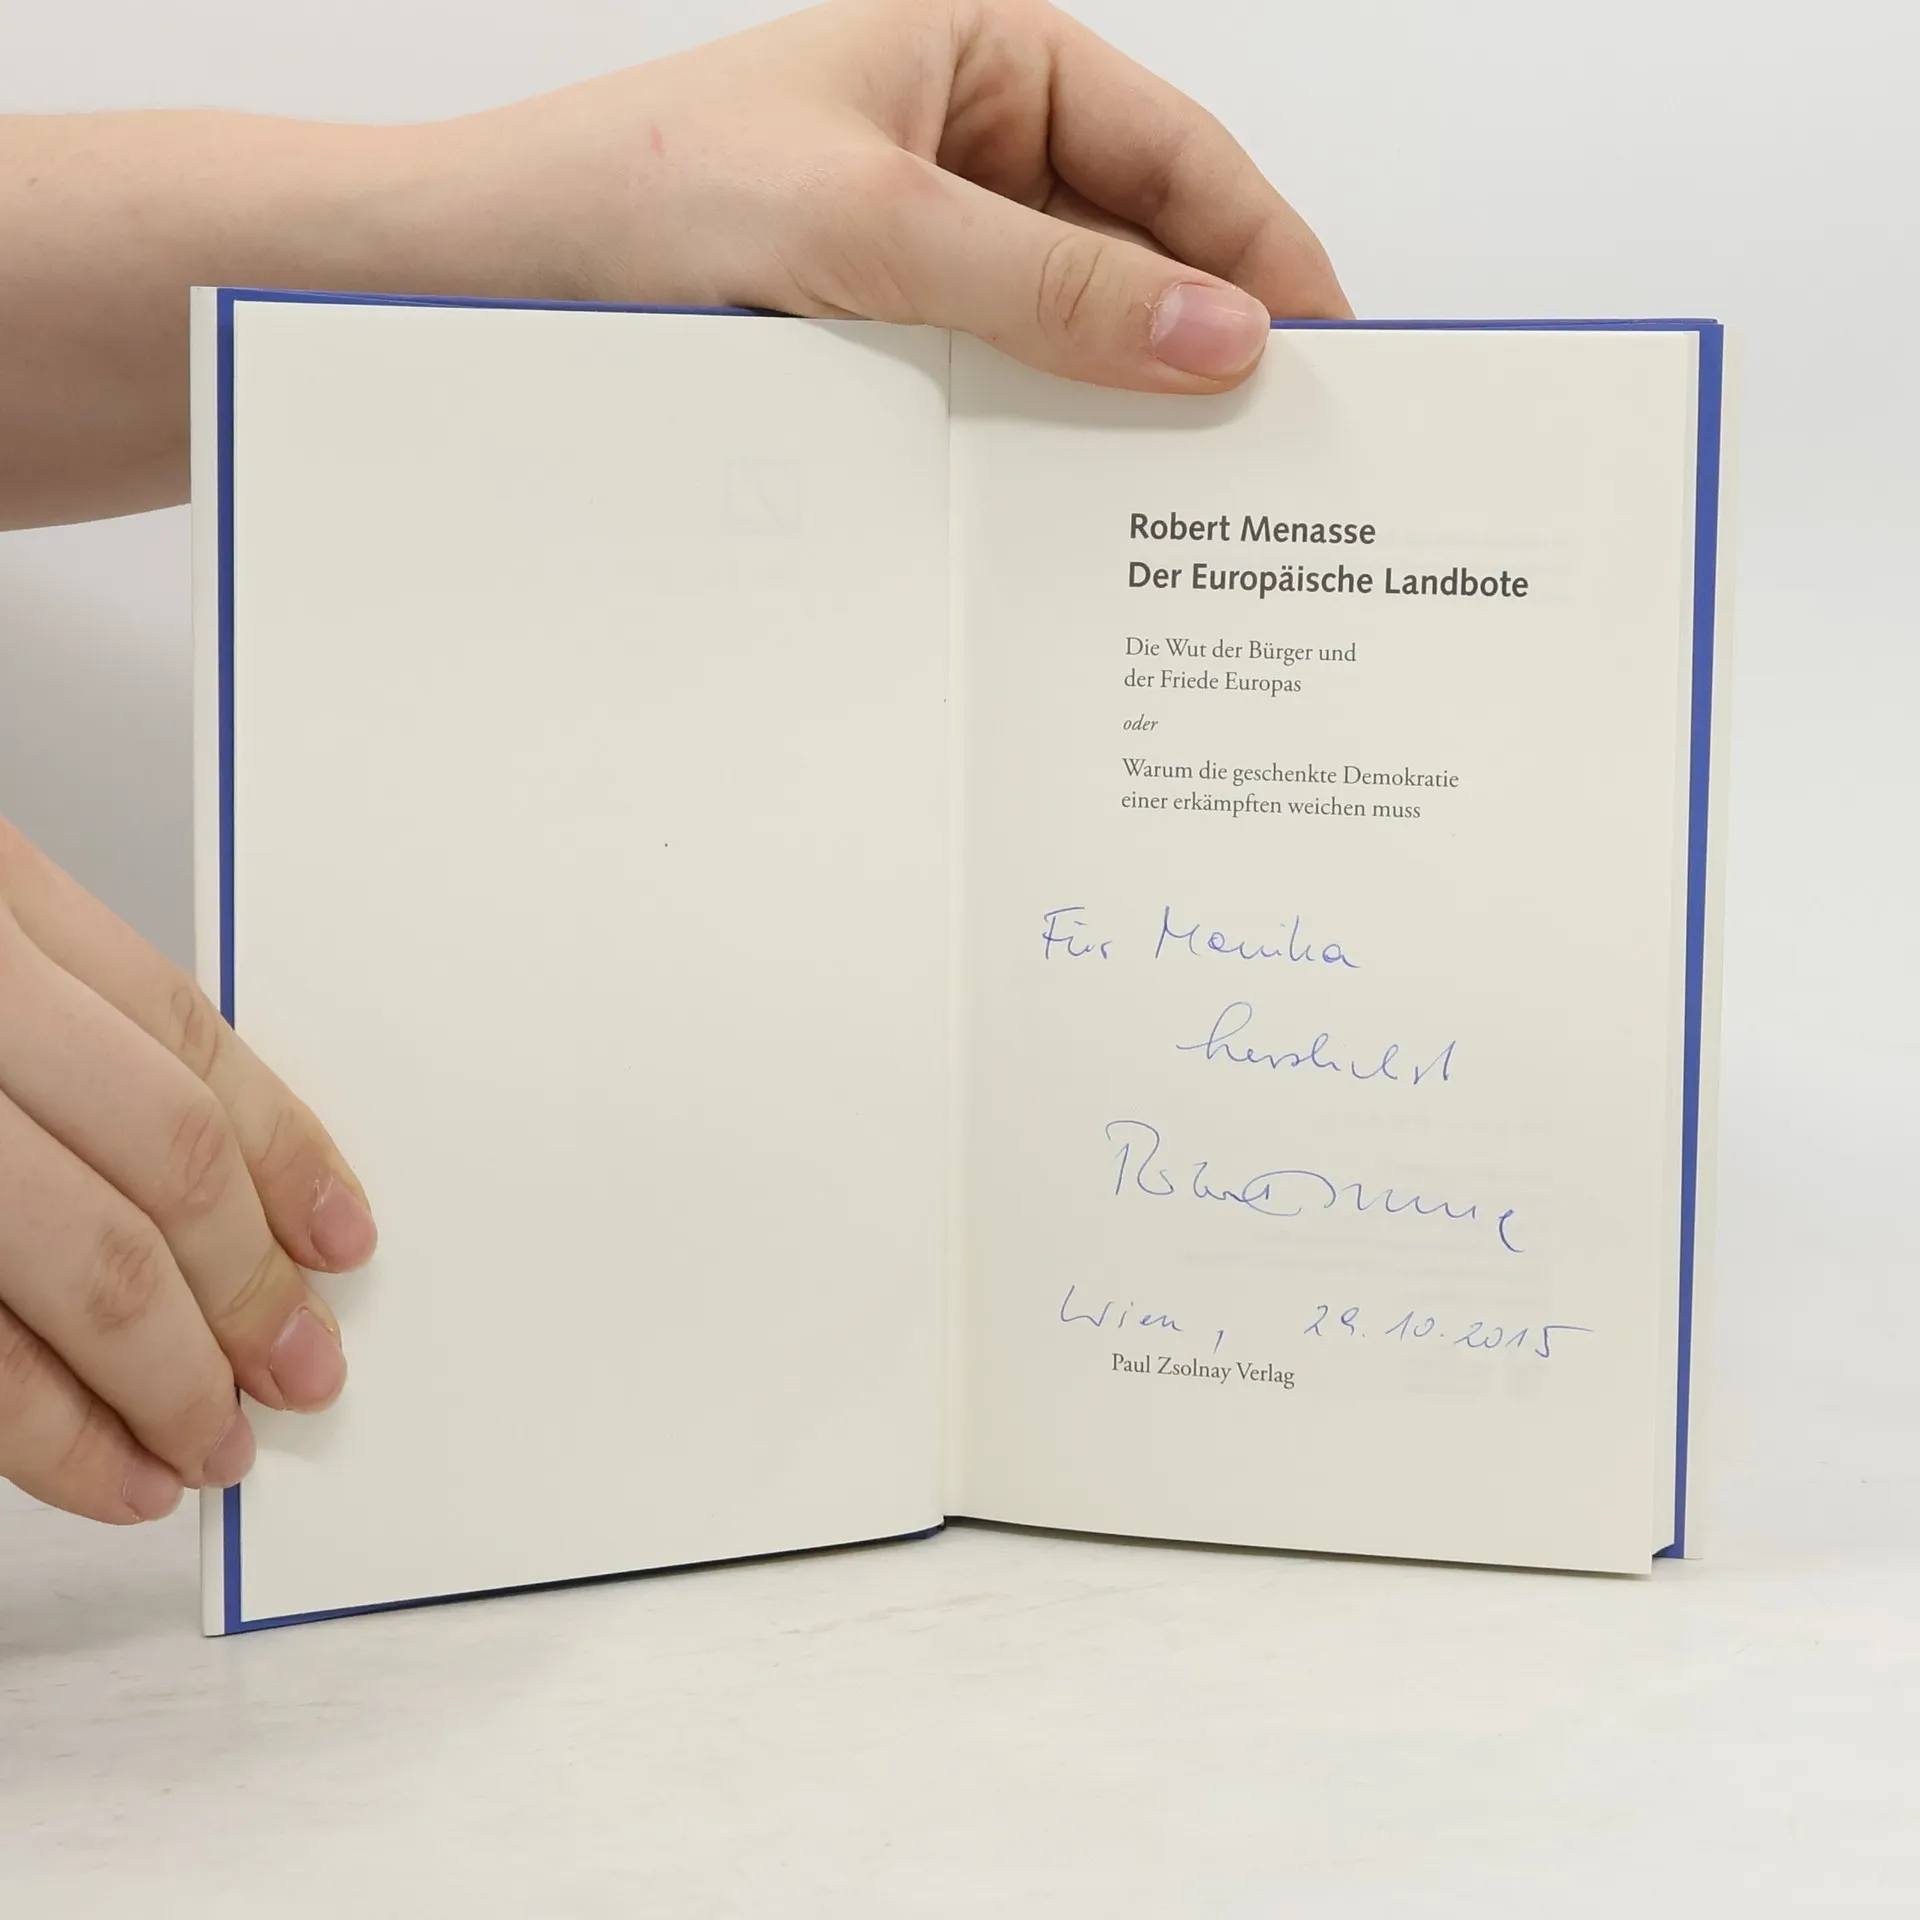 Robert Menasse
Der Europäische Landbote
Die Wut der Bürger und
der Friede Europas
oder
Warum die geschenkte Demokratie
einer erkämpften weichen muss
Für Monika
herzlichst
Robert Menasse
Wien, 29.10.2015
Paul Zsolnay Verlag